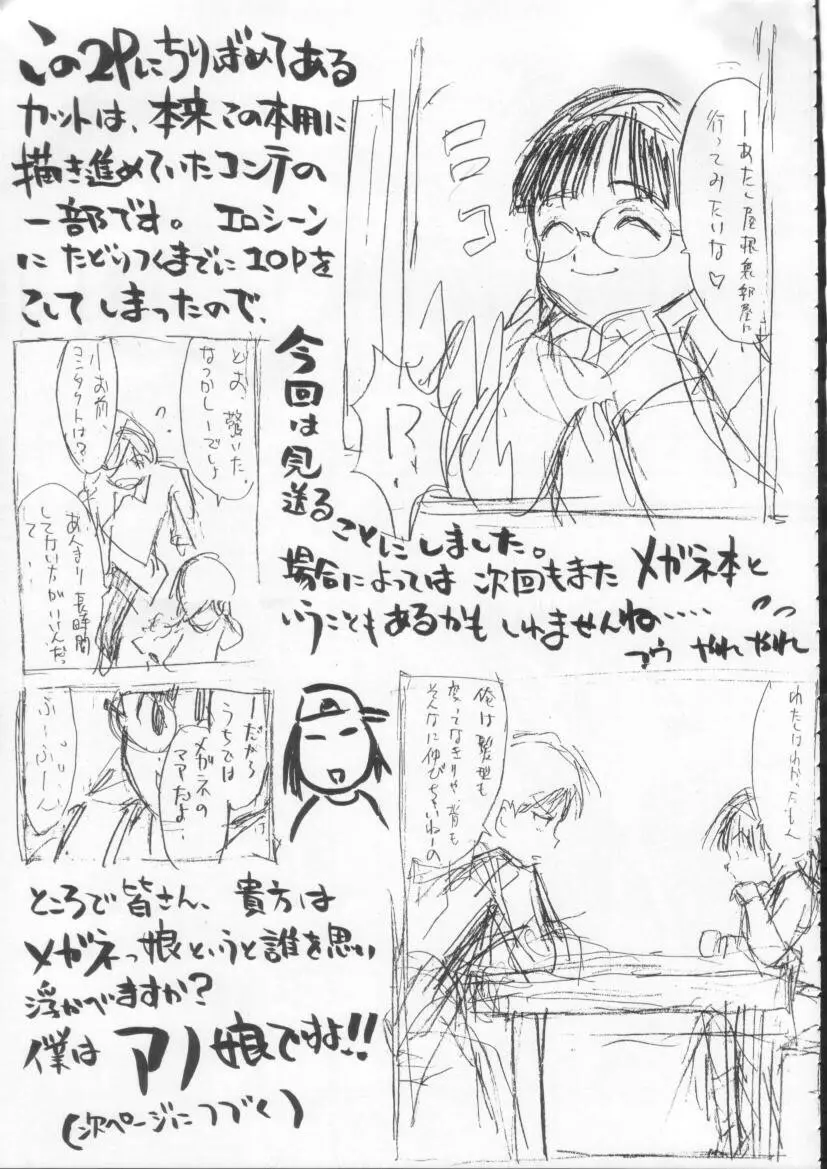 この2Pにちりばめてある
カットは、本来この本用に
描き進めていたコンテの
一部です。エロシーン
にたどりつくまでに10Pを
こしてしまったので、
今回は見送る
ことにしました。
場合によっては次回もまたメガネ本と
いうこともあるかもしれませんね……
フウ やれやれ
ーあたし屋根裏部屋に
行ってみたいな♡
ニコ
!?
とお、驚いた。
なつかしーでしょ
ーお前、
コンタクトは?
あんまり長時間
してない方がいいんだって
ーだから
うちでは
メガネの
ママだよー
ふーふーん
わたしはわかったもん
俺は髪型も
変ってなきゃ背も
そんなに伸びちゃいねーの
ところで皆さん、貴方は
メガネっ娘というと誰を思い
浮かべますか?
僕はアノ娘ですよ!!
(次ページにつづく)